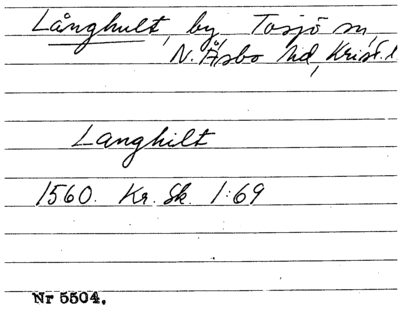 Långhult, by, Tosjö sn,
N. Åsbo hd, Krist. l
Langhilt
1560. Kr. Sk. 1:69
Nr 5504.